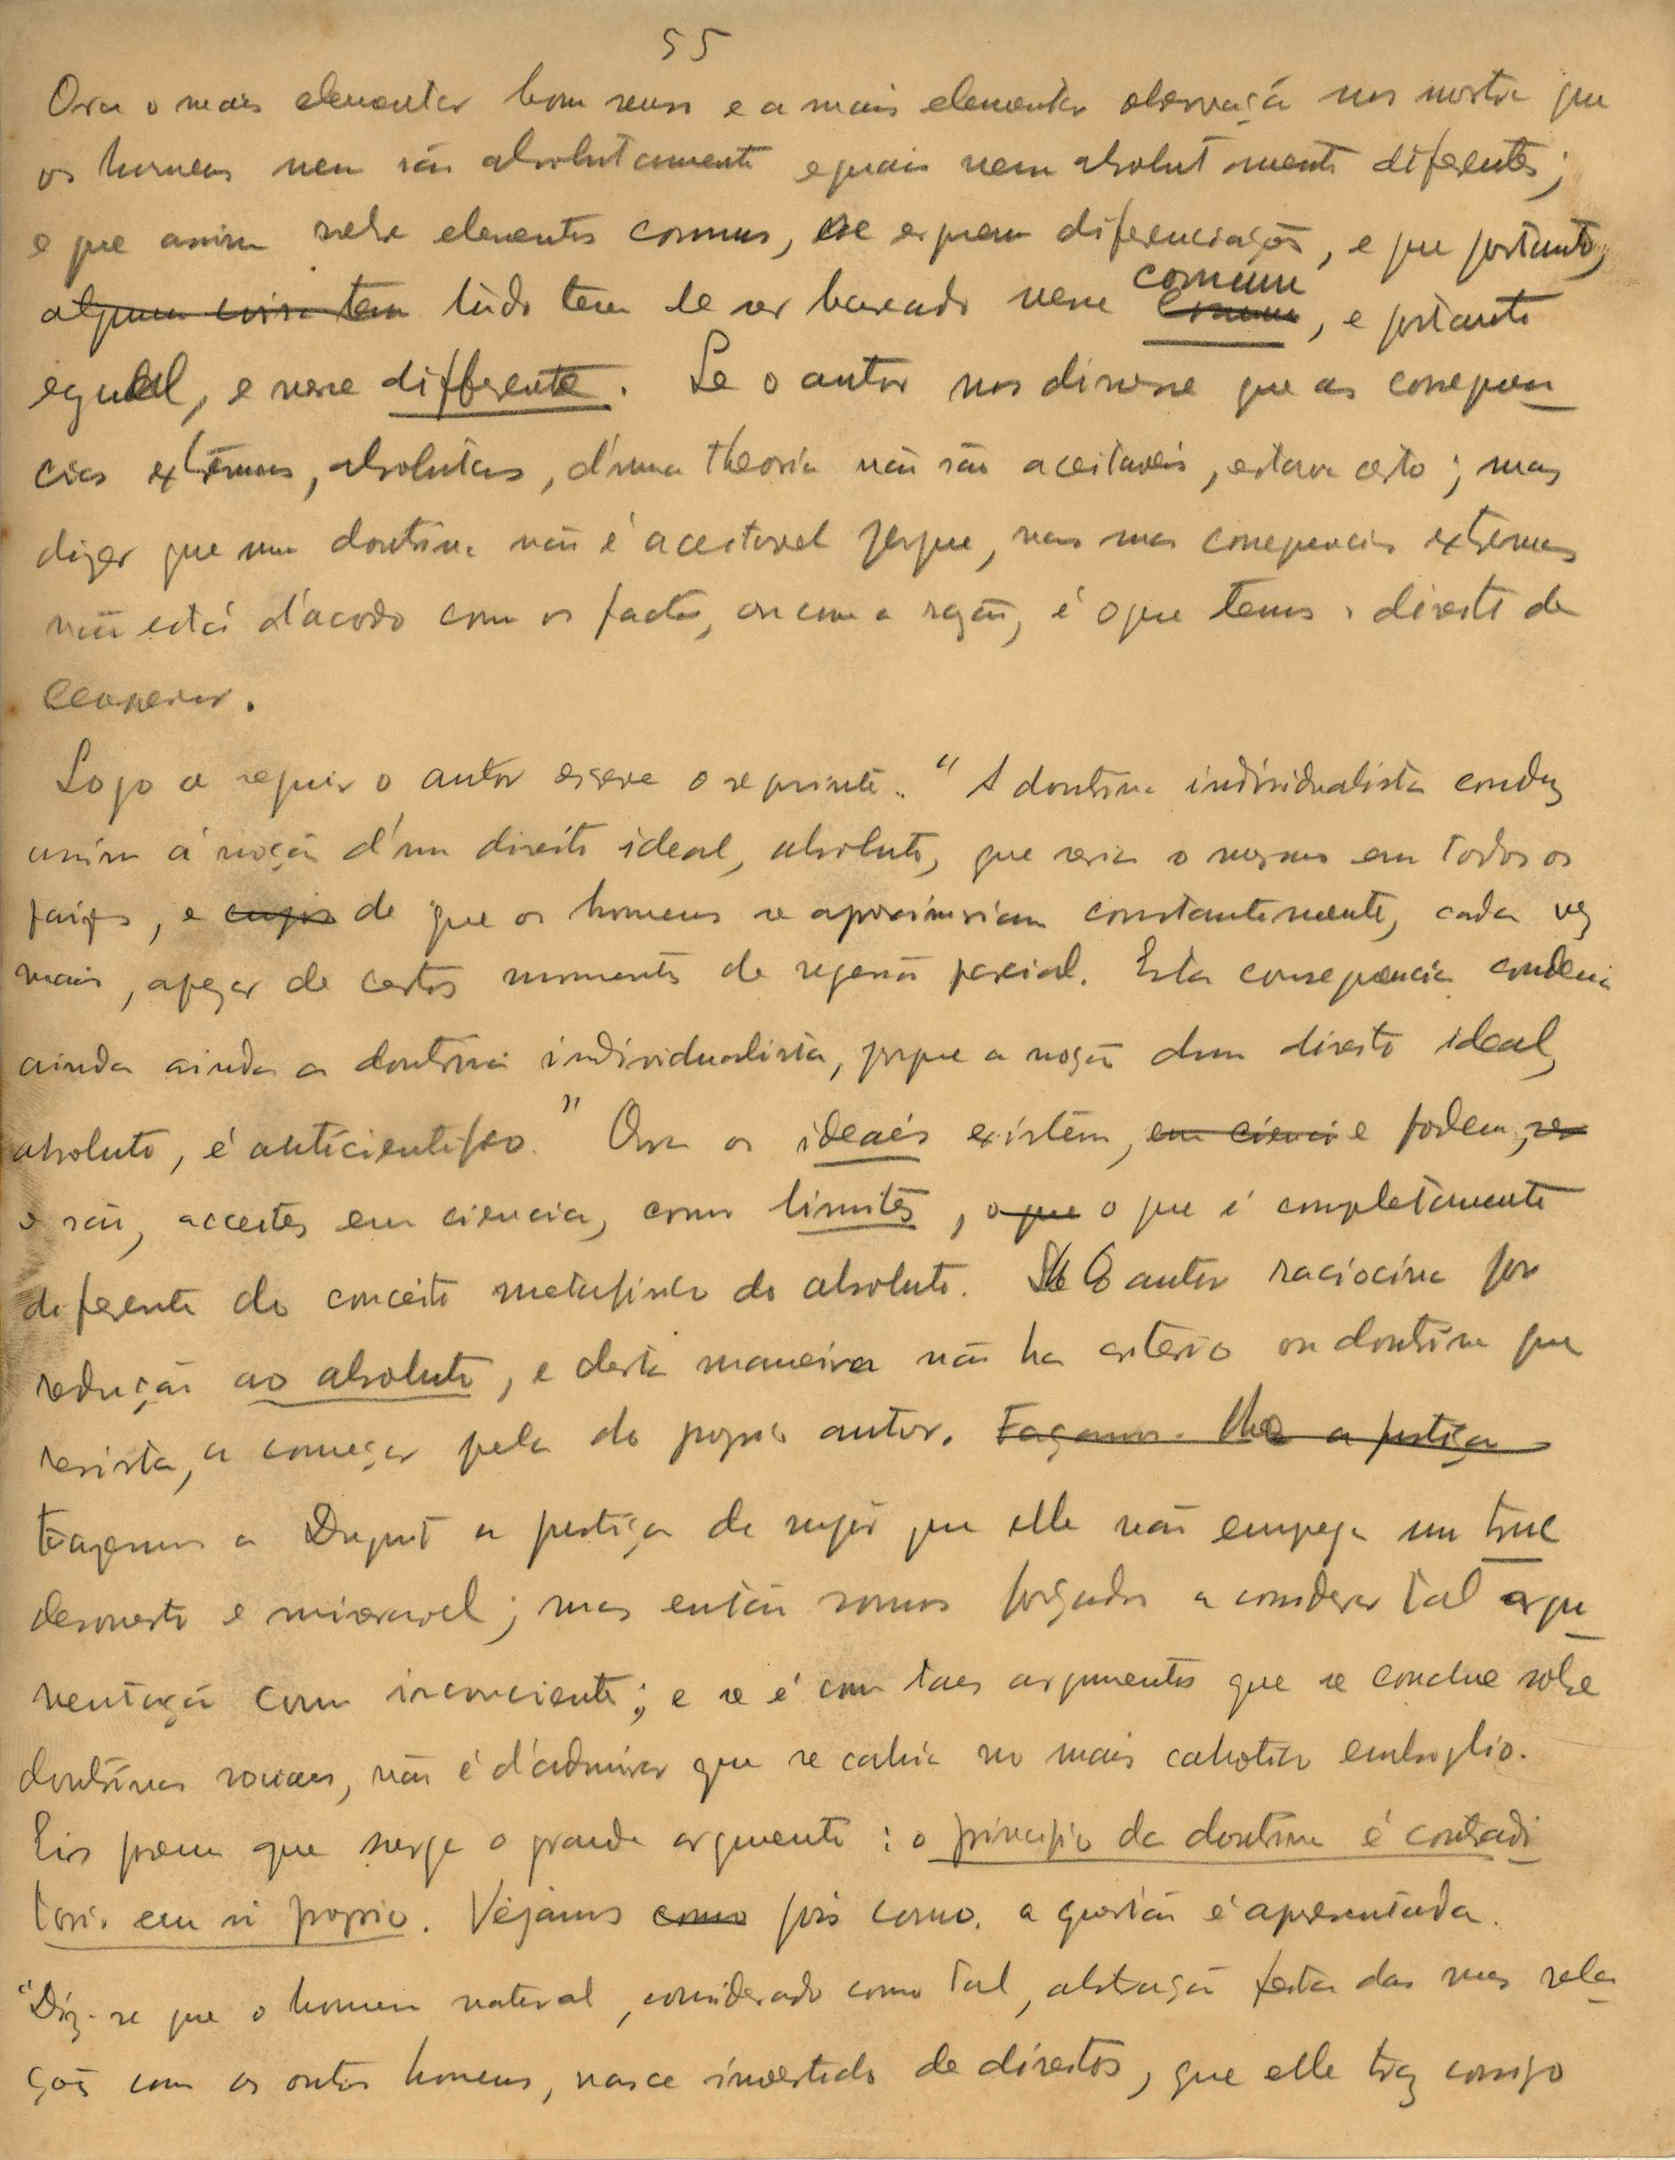 55
Ora o mais elementar bom senso e a mais elementar observação nos mostra que
os homens nem são absolutamente eguais nem absolutamente diferentes;
e que assim sobre elementos comuns, se erguem diferenciações, e que portanto,
alguma coisa tem tudo tem de ser baseado nesse comum comum, e portanto
egual, e nesse differente. Se o autor nos dissesse que as consequen
cias extremas, absolutas, d'uma theoria não são aceitaveis, estava certo; mas
dizer que uma doutrina não é aceitavel porque, nas suas consequencias extremas
não está d'acordo com os factos, ou com a razão, é o que temos o direito de
censurar.
Logo a seguir o autor escreve o seguinte. "A doutrina individualista conduz
assim á noção d'um direito ideal, absoluto, que seria o mesmo em todos os
paizes, e cujos de que os homens se aproximariam constantemente, cada vez
mais, apezar de certos momentos de regressão parcial. Esta consequencia condena
ainda ainda a doutrina individualista, porque a noção dum direito ideal,
absoluto, é anticientifico." Ora os ideaes existem, em ciencia e podem, ser
e são, acceites em ciencia, como limites, o que o que é completamente
diferente do conceito metafisico do absoluto. O autor raciocina por
redução ao absoluto, e desta maneira não ha criterio ou doutrina que
resista, a começar pela do proprio autor. Façamos-lhe a justiça
Façamos a Duguit a justiça de supôr que elle não emprega um truc
desonesto e miseravel; mas então somos forçados a considerar tal argu
mentação como inconsciente; e se é com taes argumentos que se conclue sobre
doutrinas sociaes, não é d'admirar que se cahia no mais cahotico embroglio.
Eis porem que surge o grande argumento: o principio da doutrina é contradi
torio em si proprio. Vejamos como pois como a questão é apresentada.
"Diz-se que o homem natural, considerado como tal, abstração feita das suas rela
ções com os outros homens, nasce investido de direitos, que elle traz consigo